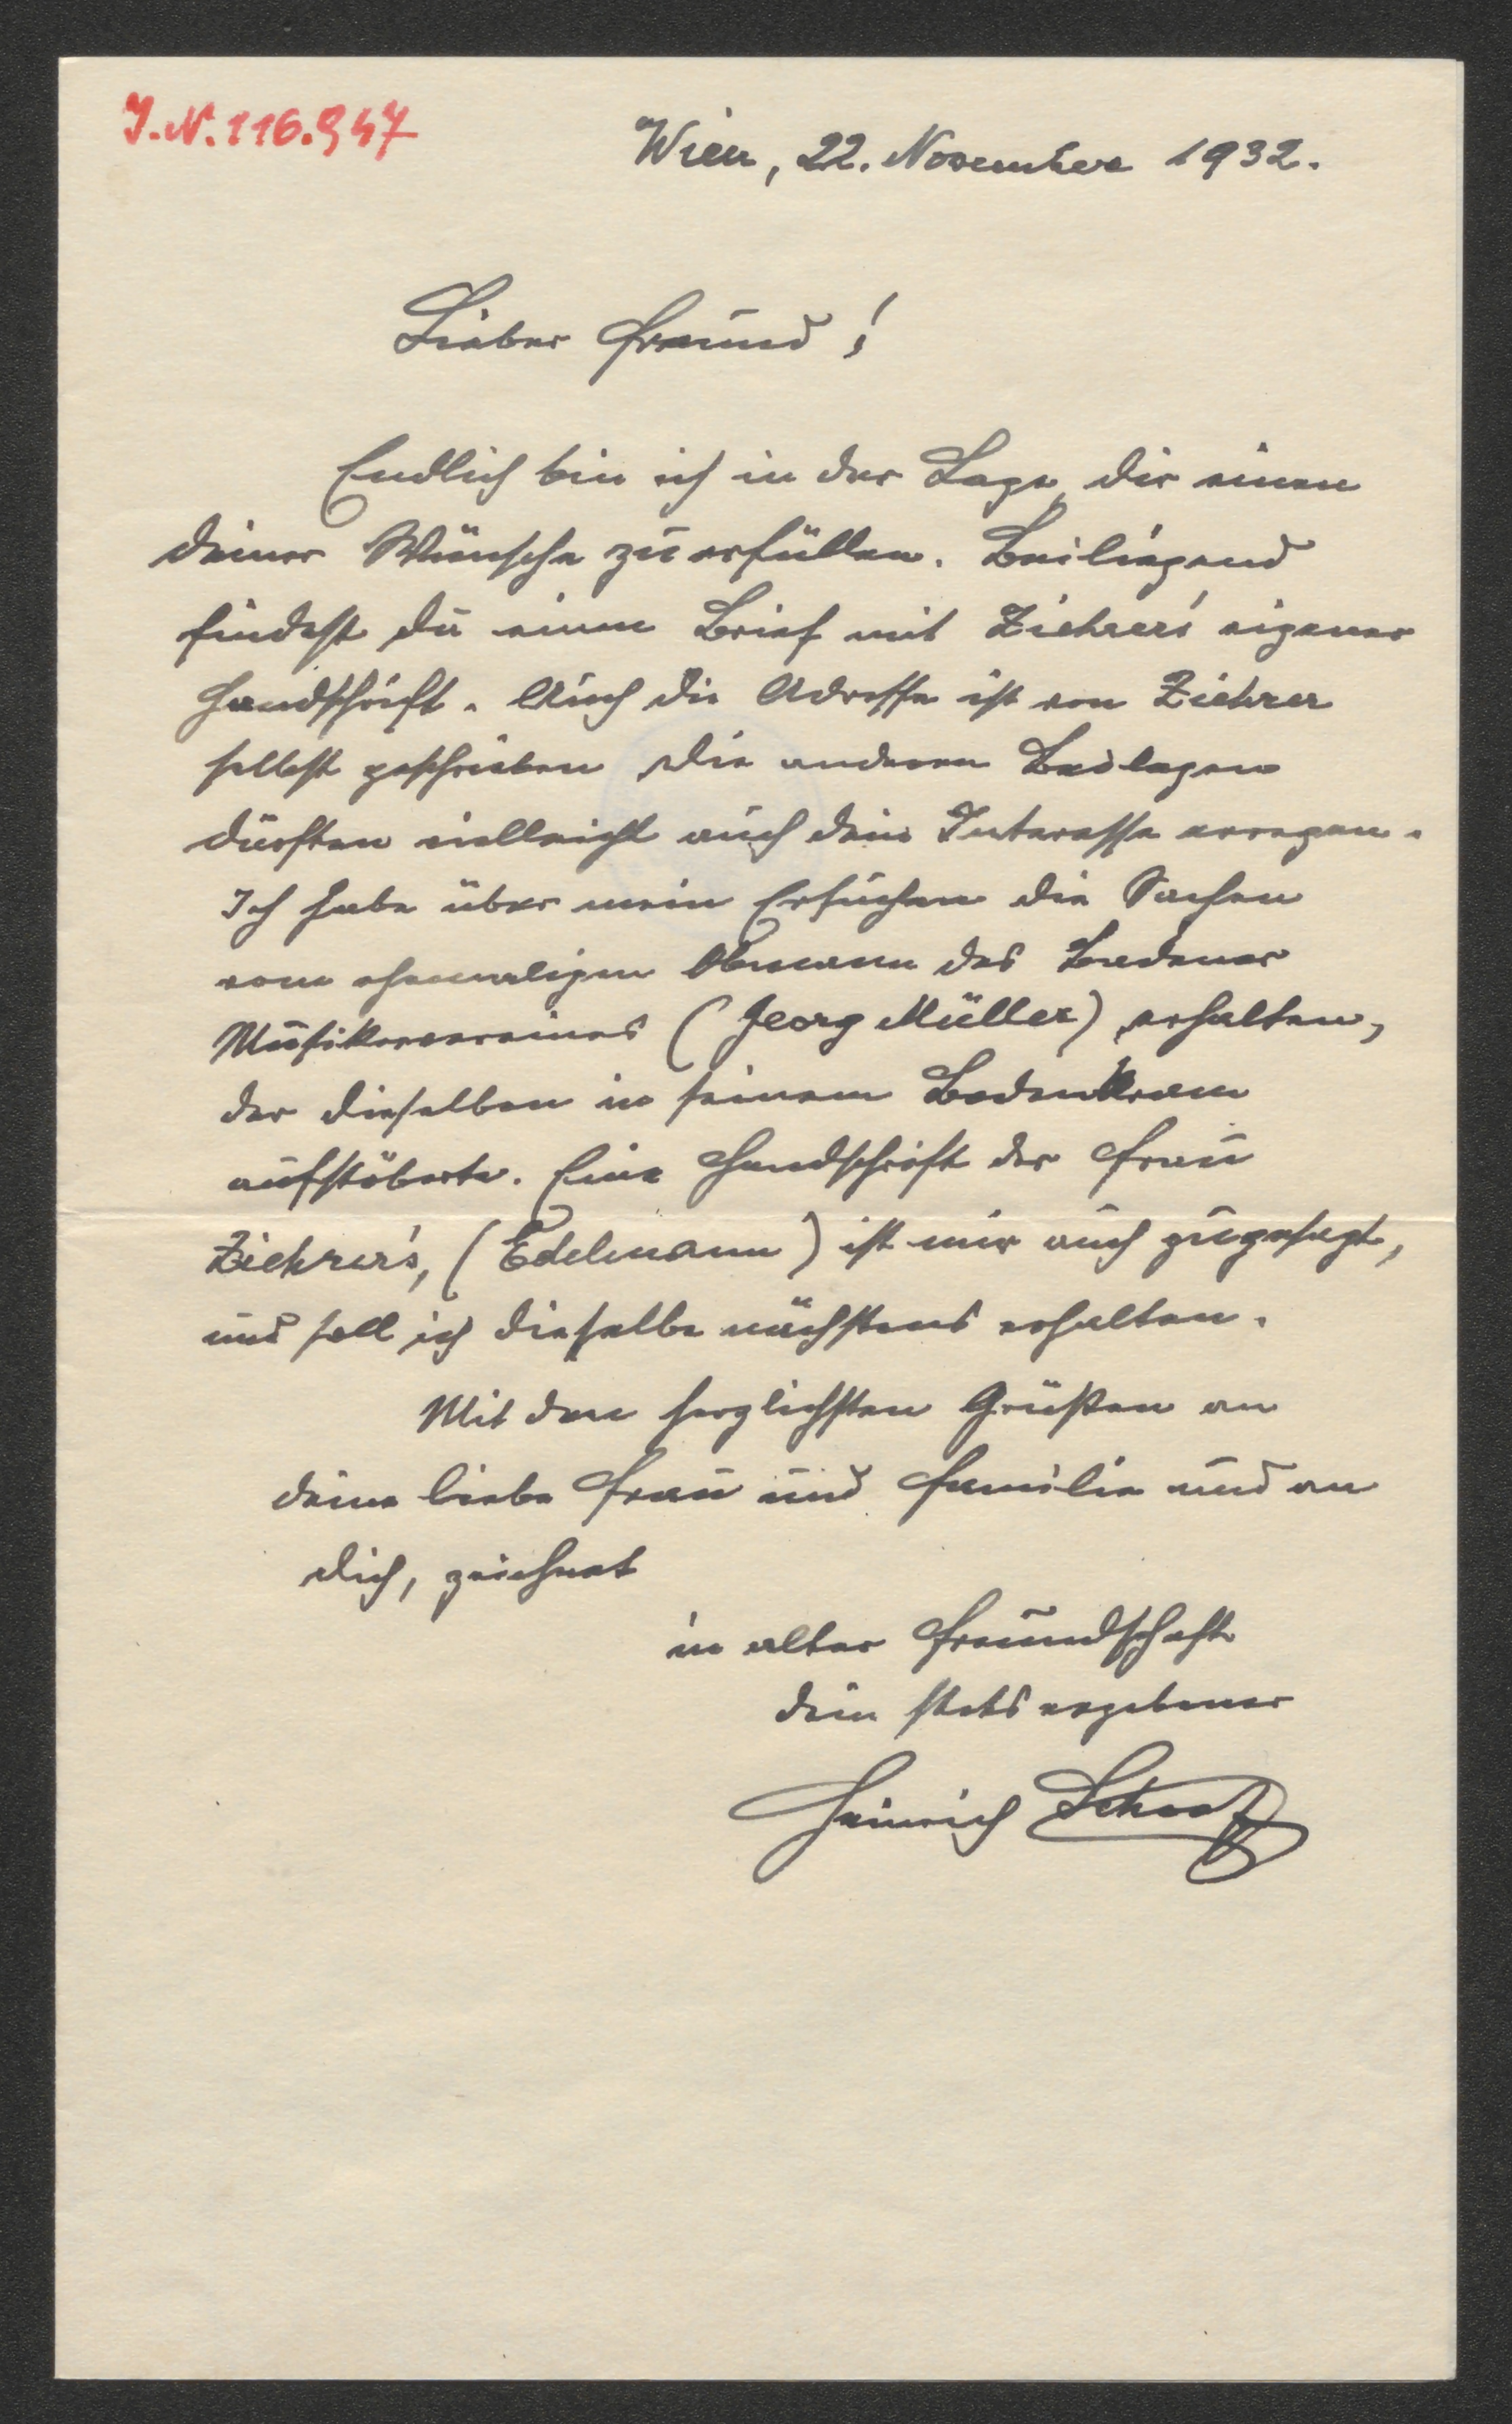 J.N. 116.947
Wien, 22. November 1932.
Lieber Freund!
Endlich bin ich in der Lage, dir einen
deiner Wünsche zu erfüllen. Beiliegend
findest du einen Brief mit Ziehrer's eigener
Handschrift. Auch die Adresse ist von Ziehrer
selbst geschrieben die anderen Beilagen
dürften vielleicht auch dein Interesse erregen.
Ich habe über mein Ersuchen die Sachen
vom ehemaligen Obmann des Badener
Musikervereines (Georg Müller) erhalten,
der dieselben in seinem Bodenkram
aufstöberte. Eine Handschrift der Frau
Ziehrer's, (Edelmann) ist mir auch zugesagt,
und soll ich dieselbe nächstens erhalten.
Mit den herzlichsten Grüßen an
deine liebe Frau und Familie und an
dich, zeichnet
in alter Freundschaft
dein stets ergebener
Heinrich